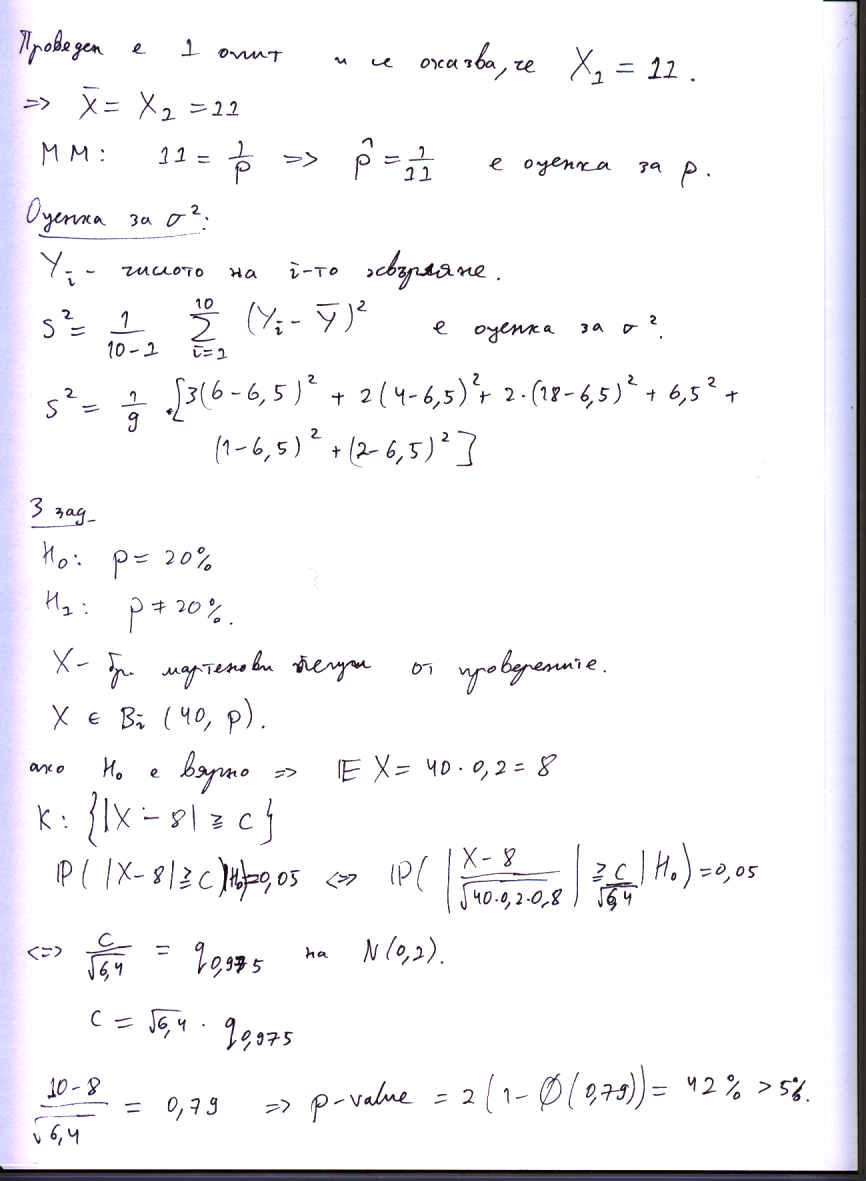 Проведен е 1 опит и се оказва, че X₁ = 11.
=> X̄ = X₁ = 11
ММ: 11 = 1/p => p̂ = 1/11 е оценка за p.
Оценка за σ²:
Yᵢ - числото на i-то хвърляне.
S² = 1/(10-1) Σ_{i=1}^{10} (Yᵢ - Ȳ)² е оценка за σ².
S² = 1/9 . [3(6-6,5)² + 2(4-6,5)² + 2.(18-6,5)² + 6,5² +
(1-6,5)² + (2-6,5)²]
3 зад.
H₀: p = 20%
H₁: p ≠ 20%.
X - бр. мартенови от проверените.
X ∈ Bi (40, p).
ако H₀ е вярно => 𝔼 X = 40 . 0,2 = 8
K: {|X - 8| ≥ c}
ℙ( |X-8| ≥ c | H₀) = 0,05 <=> ℙ( | (X-8)/√(40.0,2.0,8) | ≥ c/√6,4 | H₀ ) = 0,05
<=> c/√6,4 = q₀,₉₇₅ на N(0,1).
c = √6,4 . q₀,₉₇₅
(10-8)/√6,4 = 0,79 => p-value = 2(1-Φ(0,79)) = 42% > 5%.